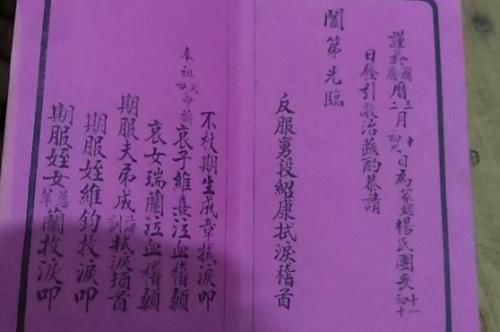 謹於國曆三月十日為家媳楊氏團喪十一
曆二初九初十
日發引敬治蔬酌恭請
闔第光臨
反服舅段紹康拭淚稽首
不杖期生成章拭淚叩
奉祖父母命稱哀子維熹泣血稽顙
哀女瑞蘭泣血稽顙
期服夫弟成訓拭淚頓首
期服姪維鈞抆淚叩
期服姪女蘭抆淚叩